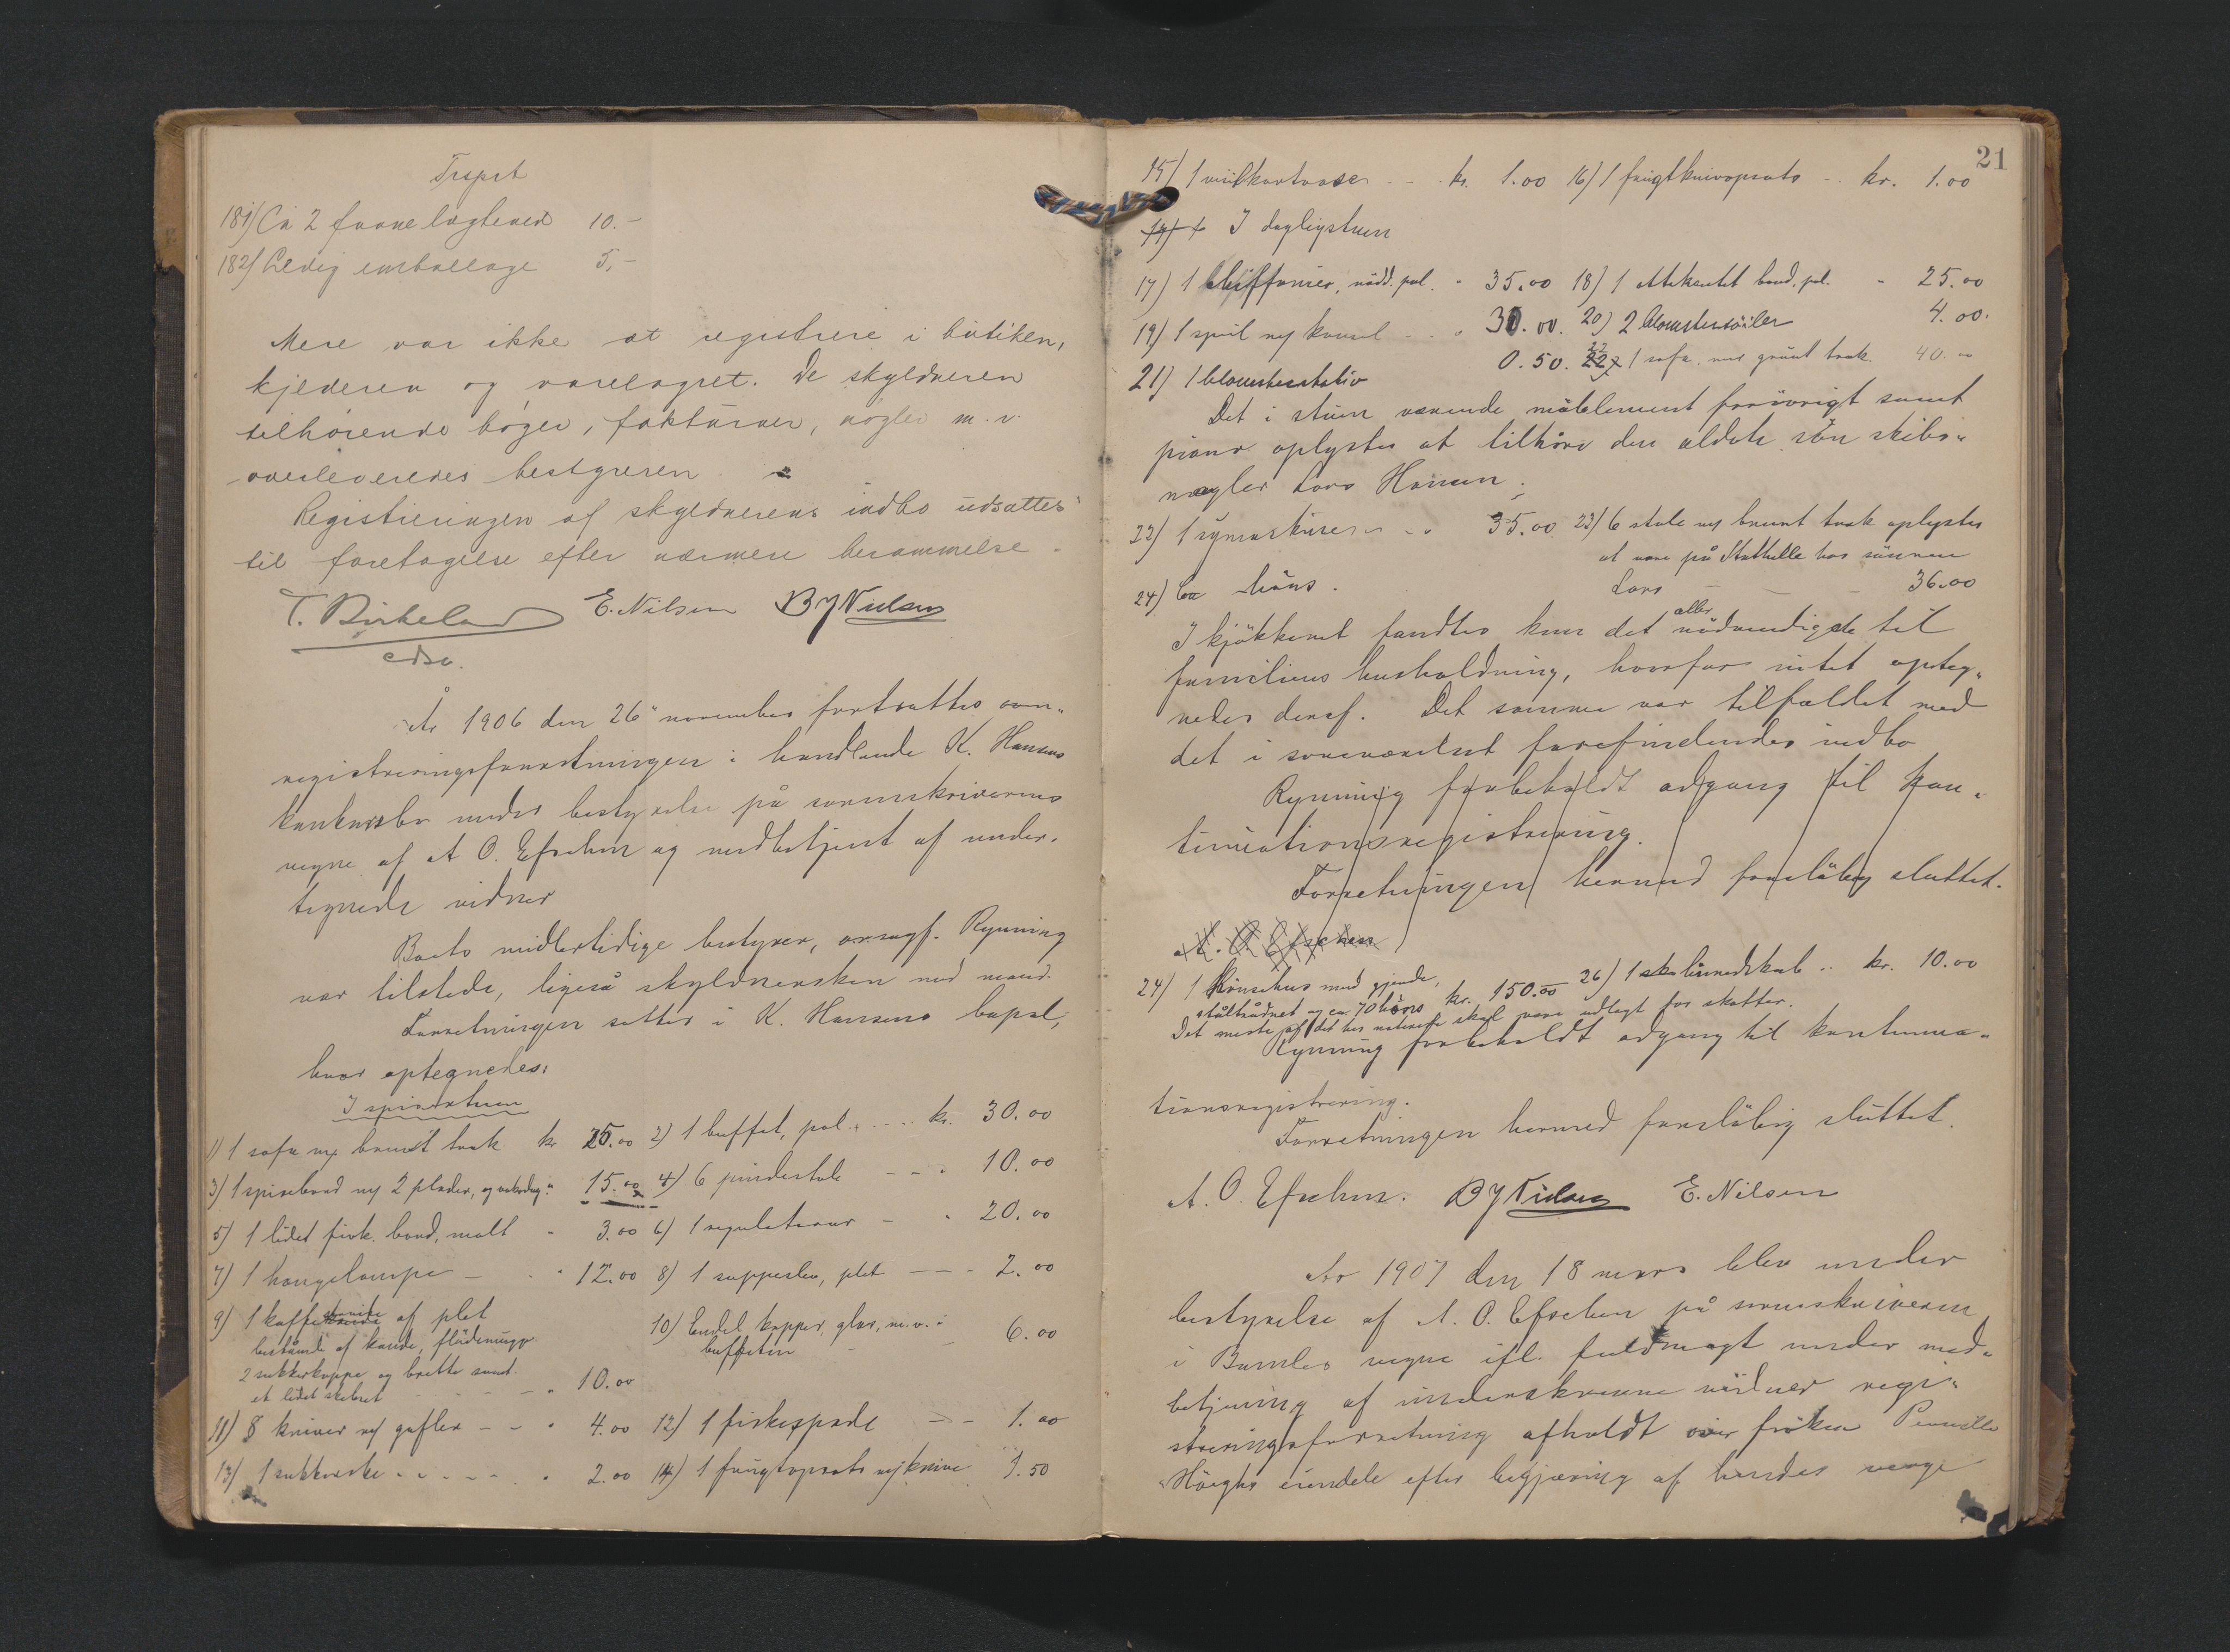 181) Ca 2 favne lægteved 10.-
182) Ledig emballage 5,-
Mere var ikke at registrere i butiken,
kjelderen og varelagret. De skyldneren
tilhørende bøger, fakturaer, nøgler m. v.
overleveredes bestyreren.
Registreringen af skyldnerens indbo udsattes
til foretagelse efter nærmere berammelse.
T. Birkeland E. Nilsen B J Nielsen
edsv.
År 1906 den 26" november fortsattes
registreringsforretningen i handlende K. Hansens
konkursbo under bestyrelse på sorenskriverens
vegne af A. O. Efschen og medbetjent af under-
tegnede vidner
Boets midlertidige bestyrer, orsagf. Rynning
var tilstede, ligeså skyldnersken med mand.
Forretningen sattes i K. Hansens bopæl,
hvor optegnedes:
I spisestuen
1) 1 sofa m/ brunt træk kr 25.00 2) 1 buffet, pol. .... kr. 30.00
3) 1 spisebord m/ 2 plader, og voksdug " 15.00 4) 6 pindestole - - " 10.00
5) 1 lidet firk. bord, malt " 3.00 6) 1 regulateur - " 20.00
7) 1 hængelampe - " 12.00 8) 1 suppeslev, plet - - - 2.00
9) 1 kaffe af plet
bestående af kande, flødemugge
2 sukkerkopper og brette samt
et lidet skibret - - - " 10.00
10) Endel kopper, glas, m. v. i
buffeten - - 6.00
11) 8 kniver m/ gafler - - " 4.00 12) 1 fiskespade - - 1.00
13) 1 sukkerske - - - - " 2.00 14) 1 frugtopsats m/ knive 1.50
21
15) 1 visitkortvase - - kr. 1.00 16) 1 frugtknivopsats - kr. 1.00
17) 1 I dagligstuen
17) 1 Chiffonier, nødd. pol. " 35.00 18) 1 ottekantet bord, pol. " 25.00
19) 1 speil m/ konsol - - " 30.00. 20) 2 blomstersøiler 4.00.
21) 1 blomsterstativ 0.50. 22) 1 sofa med grønt træk. 40.00
Det i stuen værende møblement forøvrigt samt
piano oplystes at tilhøre den ældste søn skibs-
mægler Lars Hansen.
22) 1 symaskine - - " 35.00 23) 6 stole m/ brunt træk oplystes
at være på Stathelle hos sønnen
Lars - - - 36.00
24) Ca høns.
I kjøkkenet fandtes kun det aller nødvendigste til
familiens husholdning, hvorfor intet opteg-
nedes deraf. Det samme var tilfældet med
det i soveværelset forefindendes indbo
Rynning forbeholdt adgang til kon-
tinuationsregistrering.
Forretningen hermed foreløbig sluttet.
A. O. Efschen
24) 1 Hønsehus med gjerde,
ståltrådnet og ca. 70 høns kr. 150.00 26) 1 linnedskab .. kr. 10.00
Det meste af det her noterede skal være udlagt for skatter.
Rynning forbeholdt adgang til kontinua-
tionsregistrering.
Forretningen hermed foreløbig sluttet.
A. O. Efschen. B J Nielsen E. Nilsen
Ar 1907 den 18 mars blev under
bestyrelse af A. O. Efschen på sorenskriveren
i Bambles vegne ifl. fuldmagt under med-
betjening af underskrevne vidner regi-
streringsforretning afholdt over frøken Pernille
Høeghs eiendele efter begjæring af hendes verge